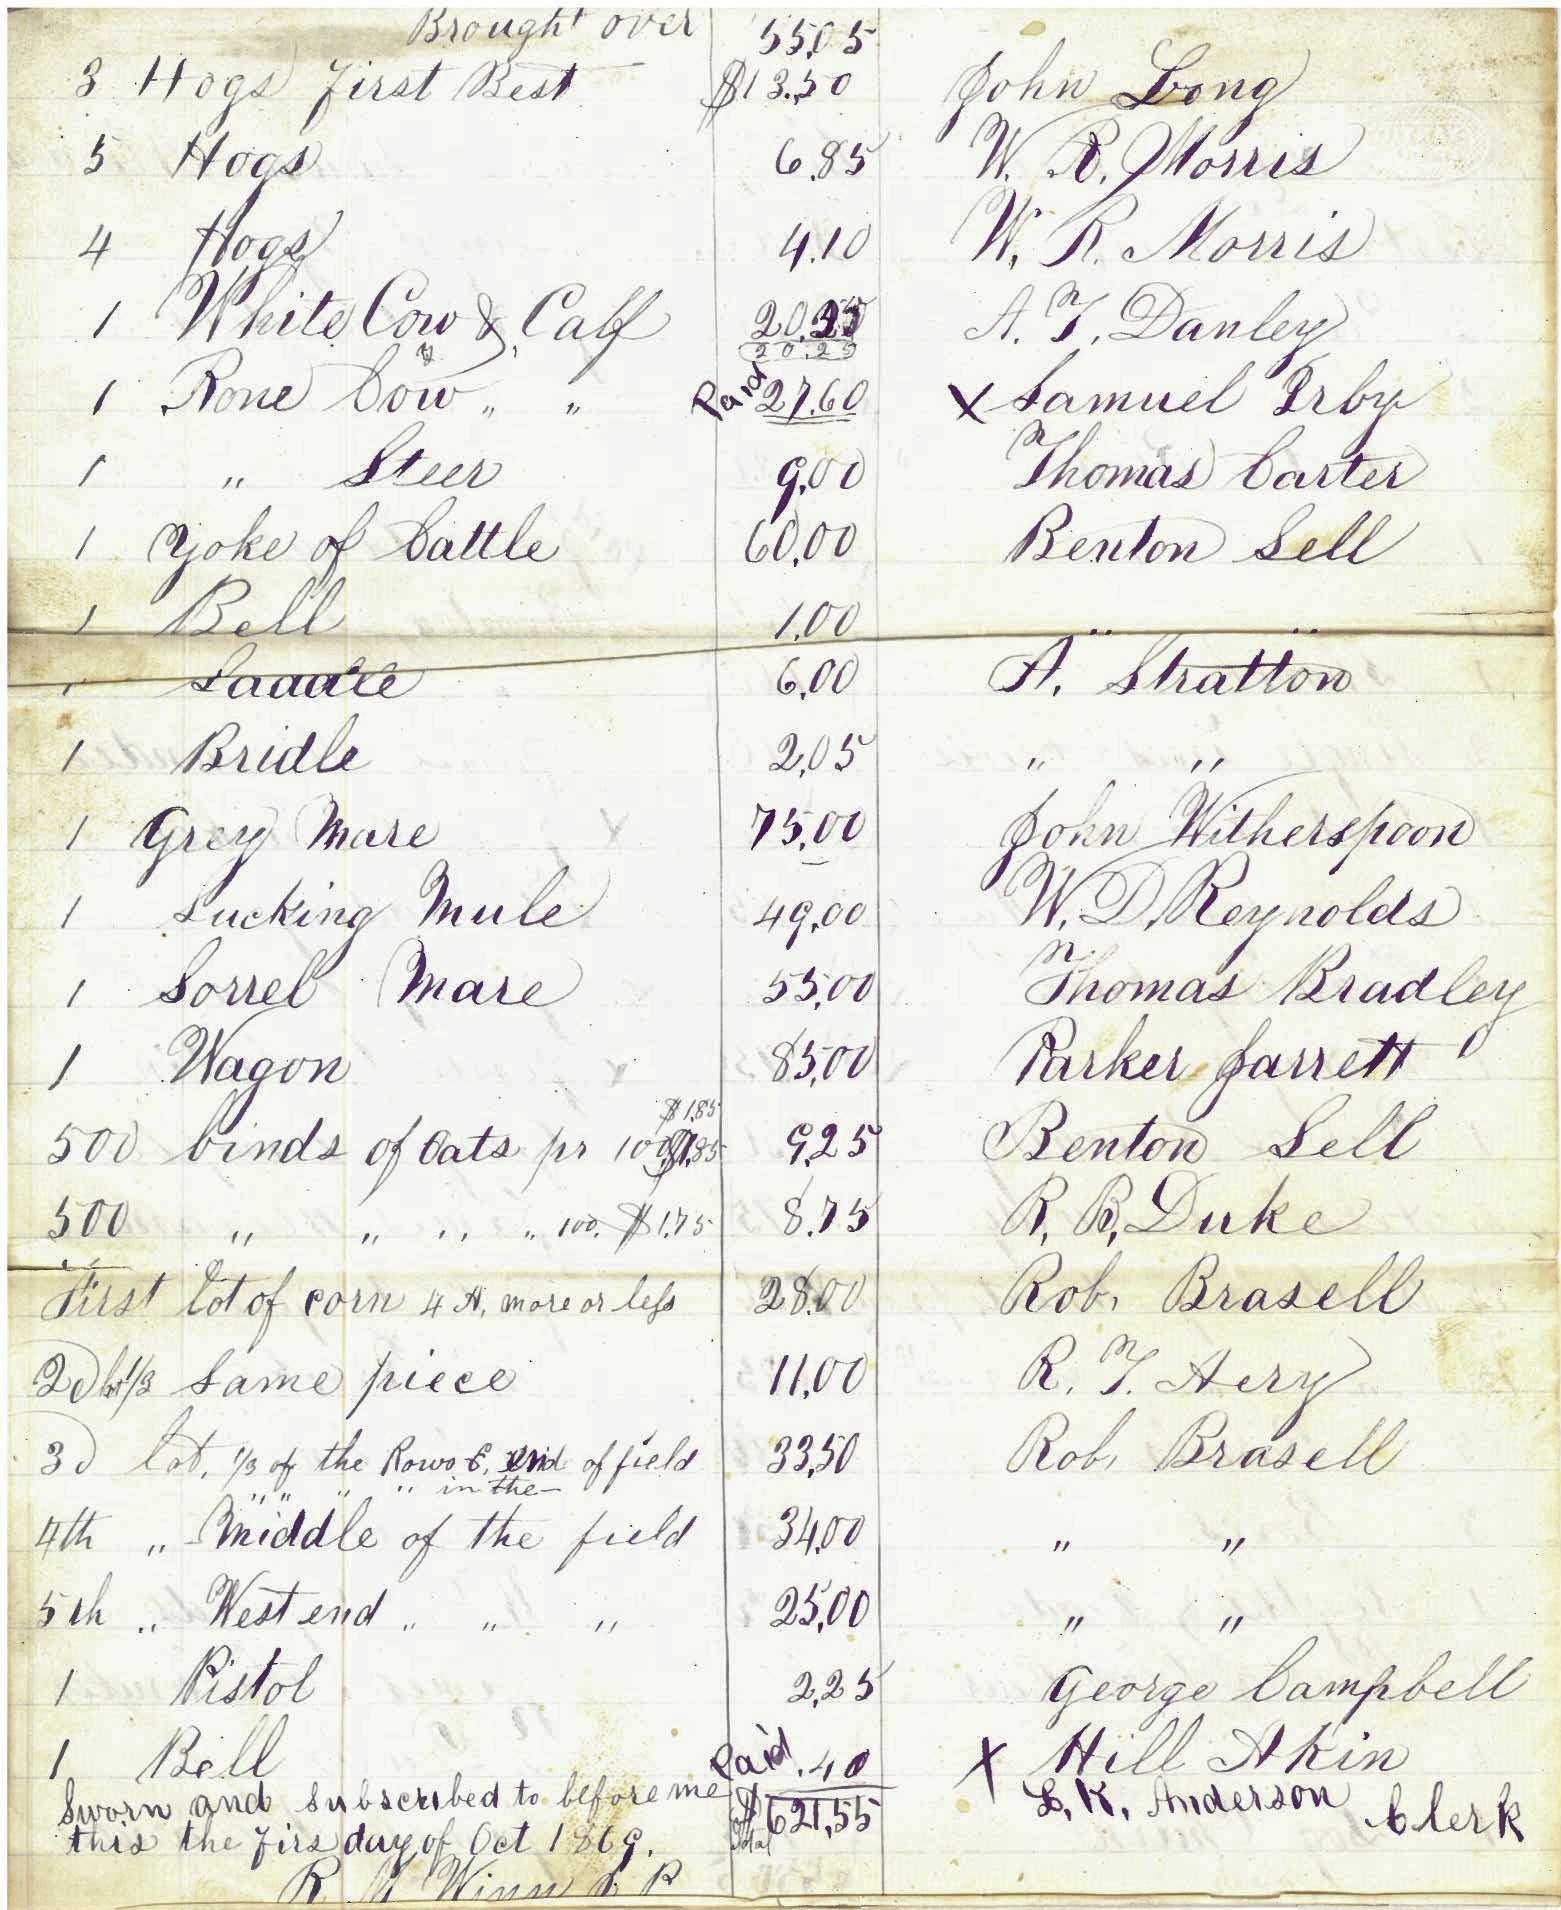 Brought over 55.05
3 Hogs First Best $13.50 John Long
5 Hogs 6.85 W. R. Morris
4 Hogs 4.10 W. R. Morris
1 White Cow & Calf 20.25 A. T. Danley
20.25
1 Rone Cow " " Paid 27.60 X Samuel Irby
1 " Steer 9.00 Thomas Carter
1 Yoke of Cattle 60.00 Benton Sell
1 Bell 1.00 " "
1 Saddle 6.00 A. Stratton
1 Bridle 2.05 " "
1 Grey Mare 75.00 John Witherspoon
1 Sucking Mule 49.00 W. D. Reynolds
1 Sorrel Mare 55.00 Thomas Bradley
1 Wagon 85.00 Parker Jarrett
$1.85
500 binds of Oats pr 100 $1.85 9.25 Benton Sell
500 " " " " 100. $1.75 8.75 R. B. Duke
First lot of corn 4 A. more or less 28.00 Rob. Brasell
2d lot 1/3 Same piece 11.00 R. T. Aery
3d lot. 1/3 of the Rows E. end of field 33.50 Rob. Brasell
" " " " in the
4th " Middle of the field 34.00 " "
5th " West end " " " 25.00 " "
1 Pistol 2.25 George Campbell
1 Bell Paid .40 X Hill Akin
Sworn and Subscribed to before me $621.55 L. K. Anderson Clerk
this the Firs day of Oct 1869. total
R M Winn J. P